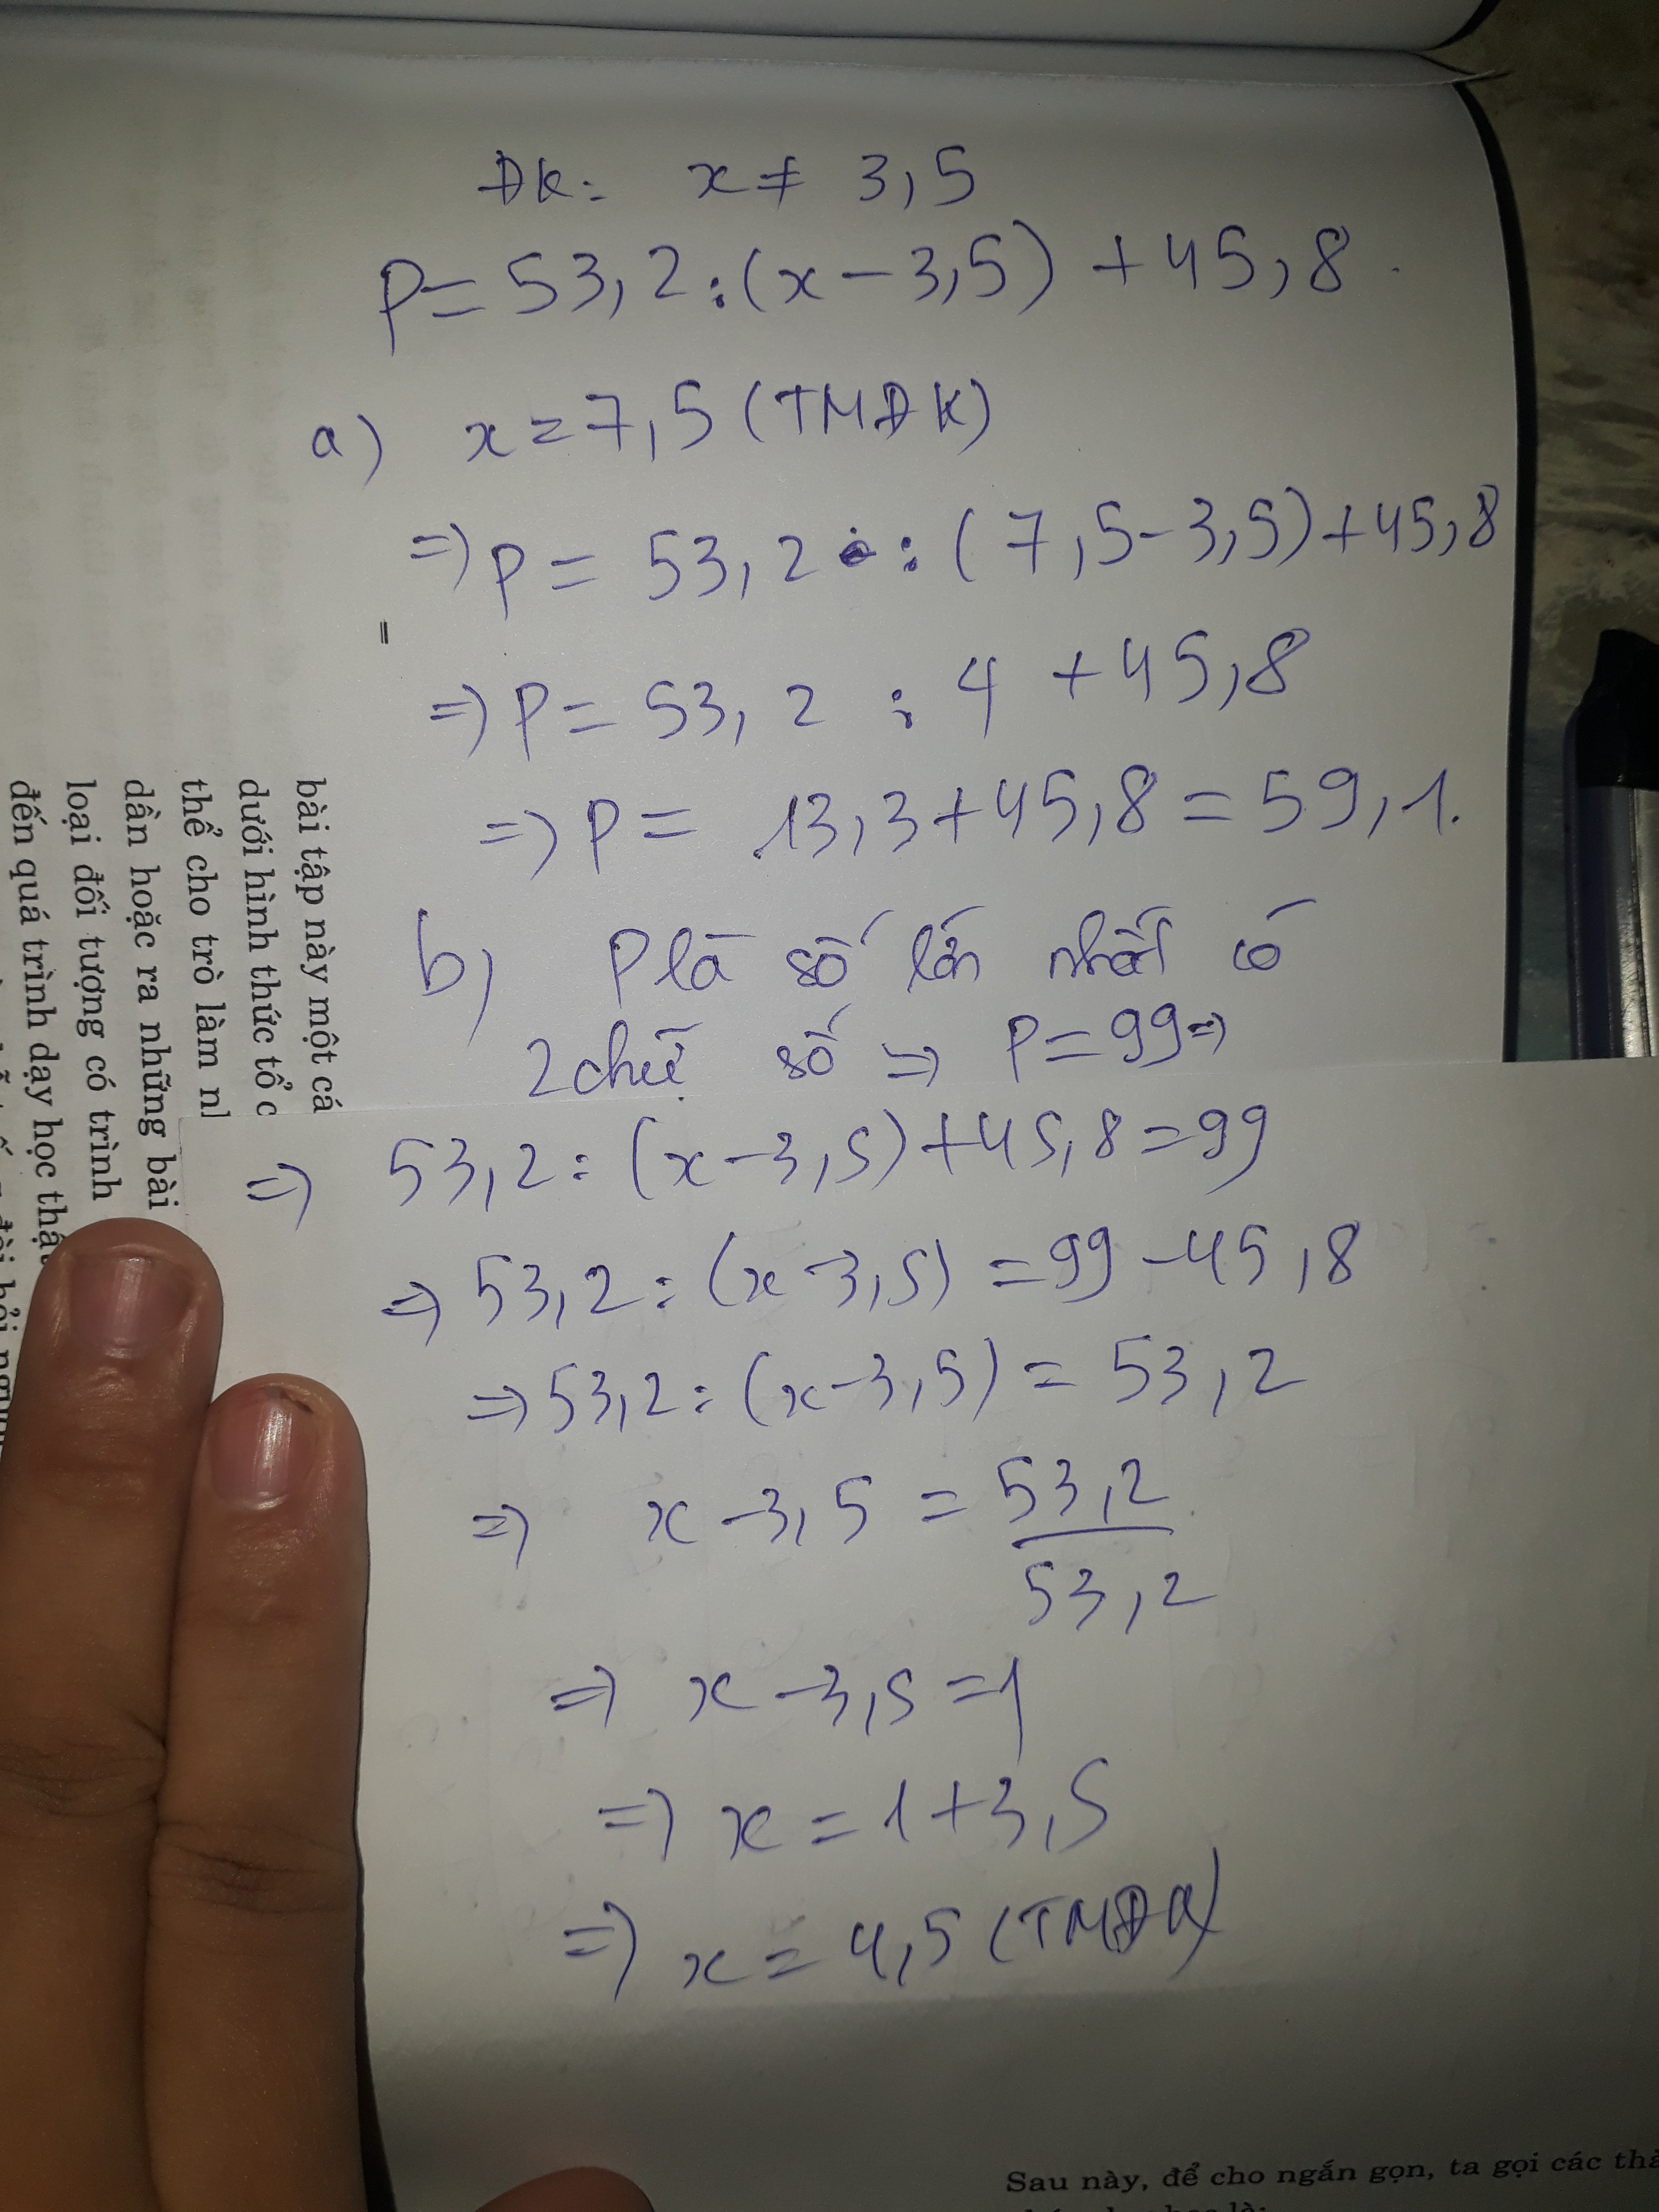 ĐK: x ≠ 3,5
P = 53,2 : (x - 3,5) + 45,8
a) x = 7,5 (TMĐK)
=> P = 53,2 : (7,5 - 3,5) + 45,8
=
=> P = 53,2 : 4 + 45,8
=> P = 13,3 + 45,8 = 59,1.
b) P là số lớn nhất có
2 chữ số => P = 99 =>
=> 53,2 : (x - 3,5) + 45,8 = 99
=> 53,2 : (x - 3,5) = 99 - 45,8
=> 53,2 : (x - 3,5) = 53,2
=> x - 3,5 = 53,2 / 53,2
=> x - 3,5 = 1
=> x = 1 + 3,5
=> x = 4,5 (TMĐK)
bài tập này một cá
dưới hình thức tổ c
thể cho trò làm n
dần hoặc ra những bài
loại đối tượng có trình
đến quá trình dạy học thật
Sau này, để cho ngắn gọn, ta gọi các thà